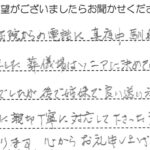 望がございましたらお聞かせくださ
病院からの電話に真夜中
した 葬儀場はソニアに決めて
でしたが 後で姉様で良い送り
に親切丁寧に対応して下さった
ります。心からお礼申し上げ